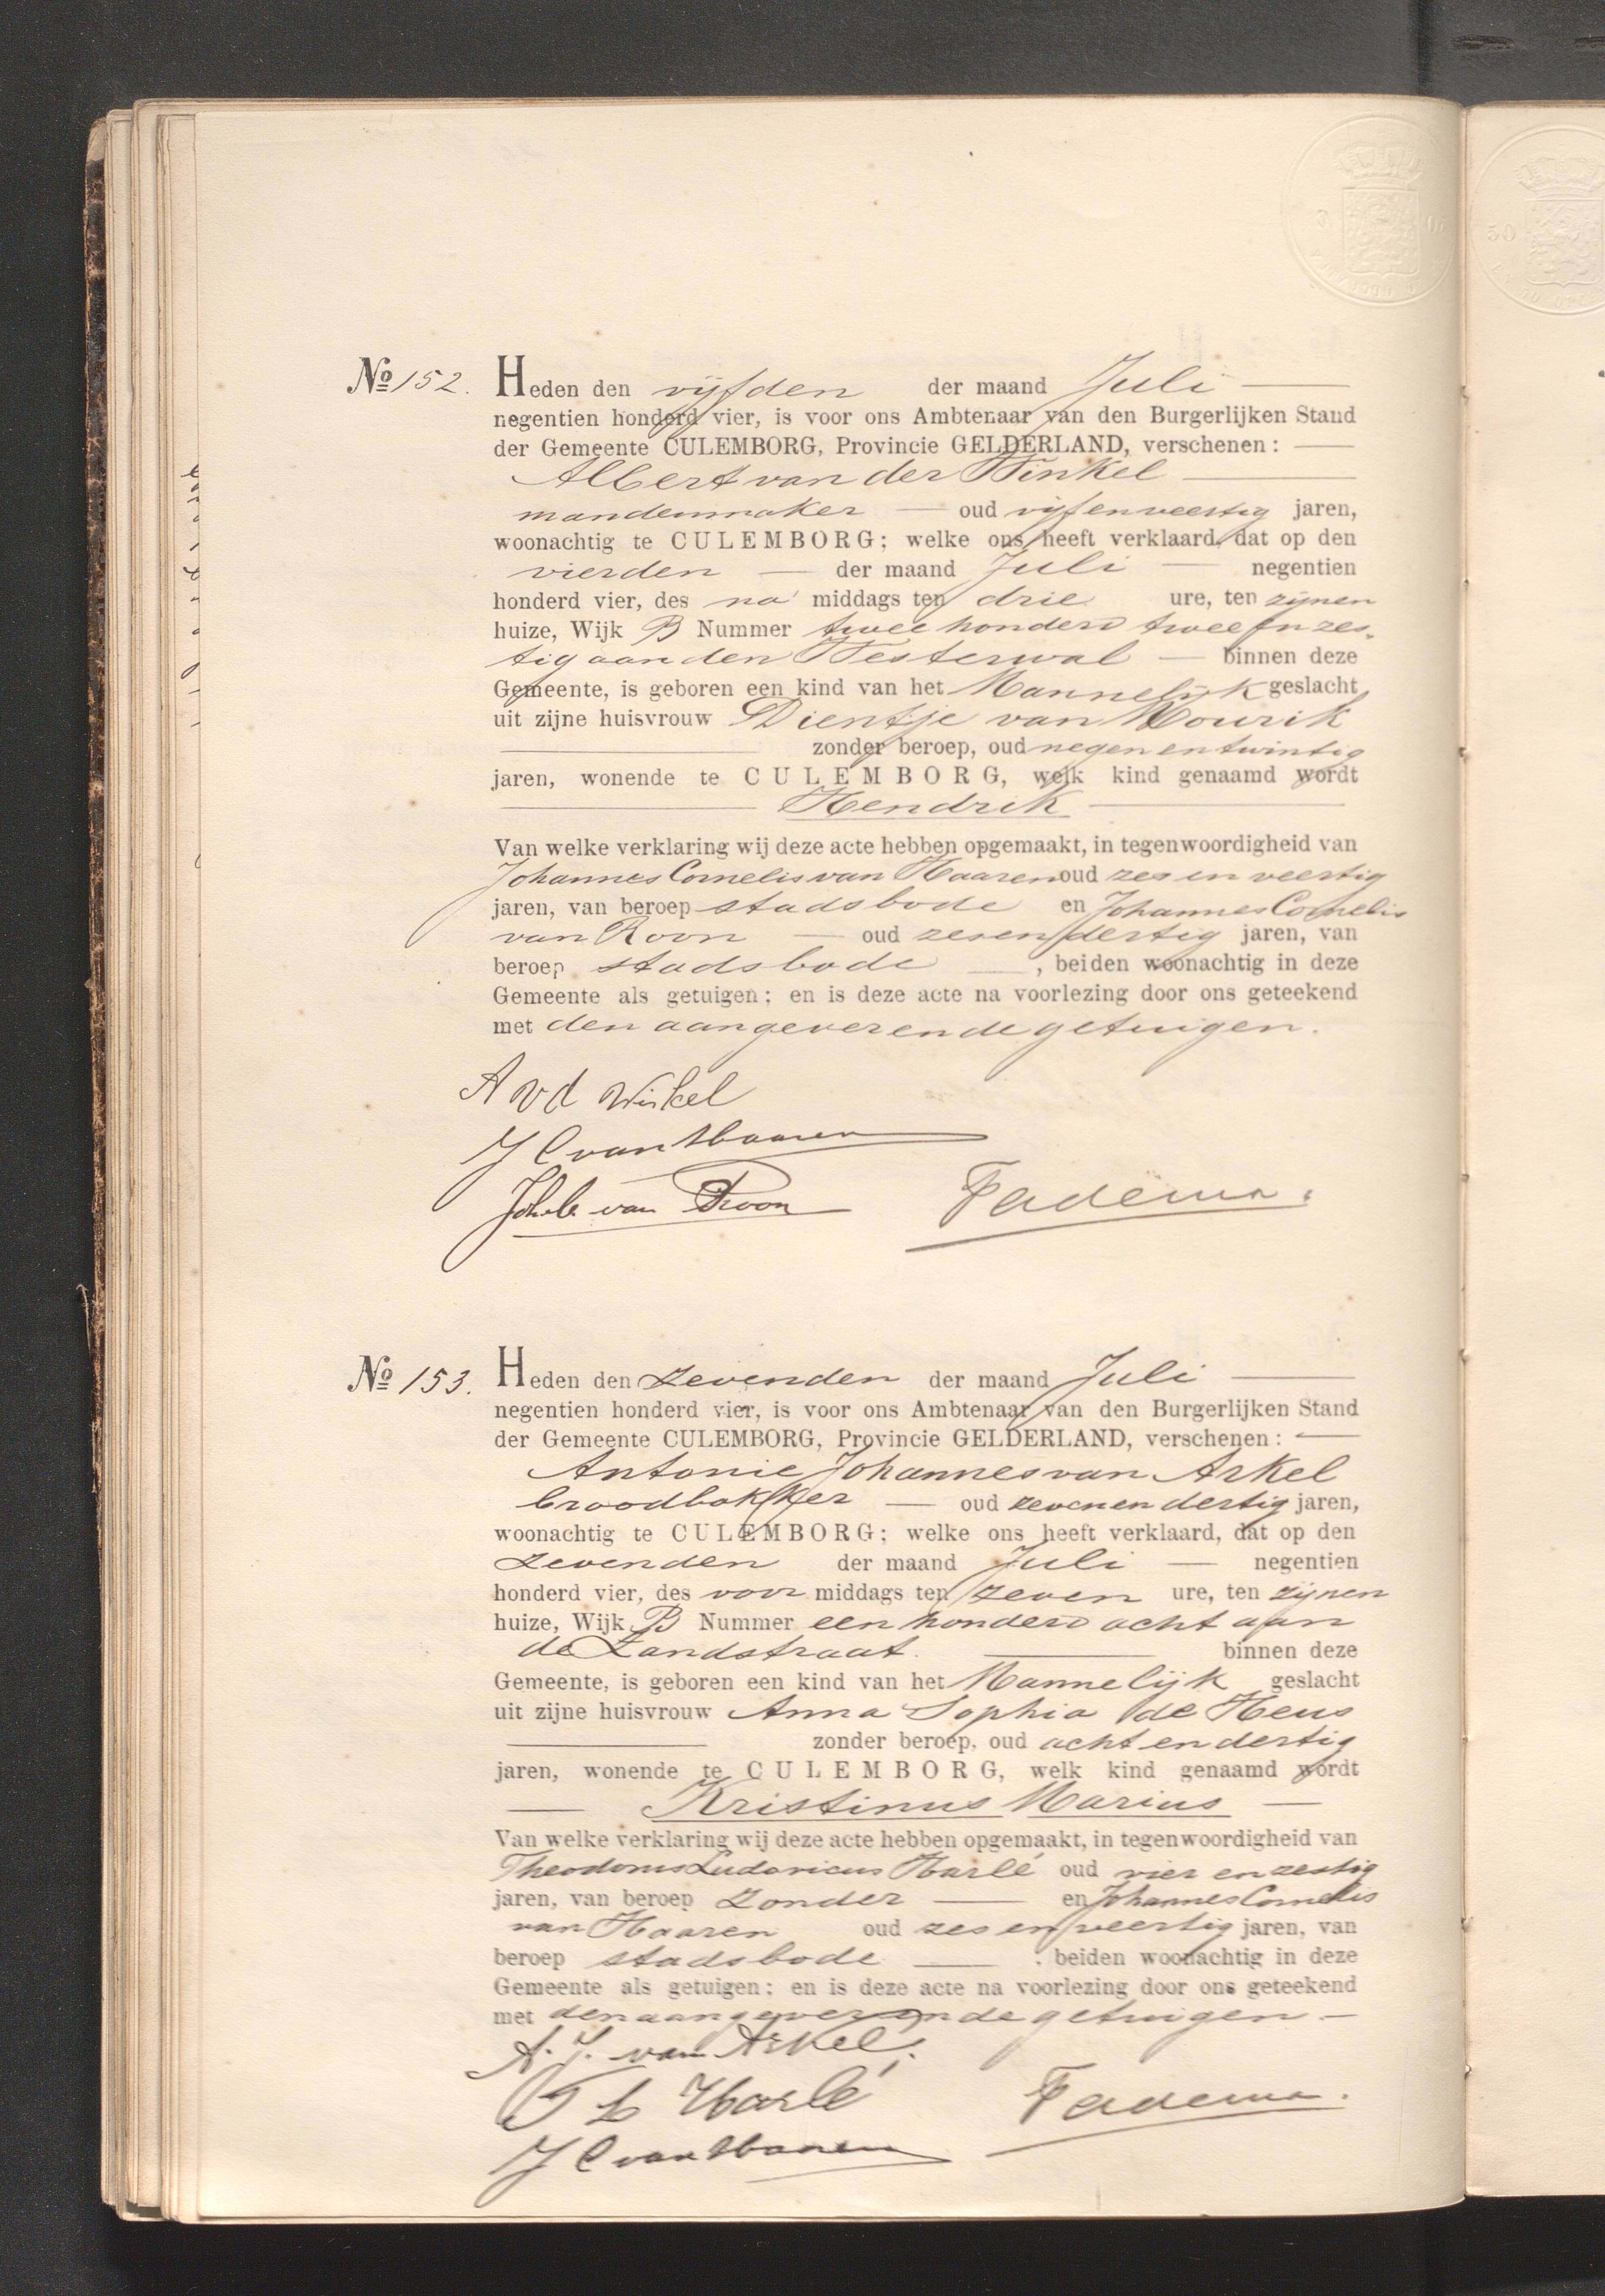 No 152. Heden den vijfden der maand Juli
negentien honderd vier, is voor ons Ambtenaar van den Burgerlijken Stand
der Gemeente CULEMBORG, Provincie GELDERLAND, verschenen:
Albert van der Winkel
mandenmaker oud vijf en veertig jaren,
woonachtig te CULEMBORG; welke ons heeft verklaard, dat op den
vierden der maand Juli negentien
honderd vier, des na middags ten drie ure, ten zijnen
huize, Wijk B Nummer twee honderd twee en zes-
tig aan den Westerwal binnen deze
Gemeente, is geboren een kind van het Mannelijk geslacht
uit zijne huisvrouw Dientje van Mourik
zonder beroep, oud negen en twintig
jaren, wonende te CULEMBORG, welk kind genaamd wordt
Hendrik
Van welke verklaring wij deze acte hebben opgemaakt, in tegenwoordigheid van
Johannes Cornelis van Haaren oud zes en veertig
jaren, van beroep stadsbode en Johannes Cornelis
van Roon oud zes en dertig jaren, van
beroep stadsbode, beiden woonachtig in deze
Gemeente als getuigen; en is deze acte na voorlezing door ons geteekend
met den aangever en de getuigen.
A vd Winkel
J C van Haaren
Joh C van Roon
Fadema.
No 153. Heden den zevenden der maand Juli
negentien honderd vier, is voor ons Ambtenaar van den Burgerlijken Stand
der Gemeente CULEMBORG, Provincie GELDERLAND, verschenen:
Antonie Johannes van Arkel
broodbakker oud zeven en dertig jaren,
woonachtig te CULEMBORG; welke ons heeft verklaard, dat op den
zevenden der maand Juli negentien
honderd vier, des voor middags ten zeven ure, ten zijnen
huize, Wijk B Nummer een honderd acht aan
de Zandstraat. binnen deze
Gemeente, is geboren een kind van het Mannelijk geslacht
uit zijne huisvrouw Anna Sophia de Heus
zonder beroep, oud acht en dertig
jaren, wonende te CULEMBORG, welk kind genaamd wordt
Kristinus Marius
Van welke verklaring wij deze acte hebben opgemaakt, in tegenwoordigheid van
Theodorus Ludovicus Harlé oud vier en zestig
jaren, van beroep zonder en Johannes Cornelis
van Haaren oud zes en veertig jaren, van
beroep stadsbode, beiden woonachtig in deze
Gemeente als getuigen; en is deze acte na voorlezing door ons geteekend
met den aangever en de getuigen
A. J. van Arkel.
T L Harlé
Fadema.
J C van Haaren